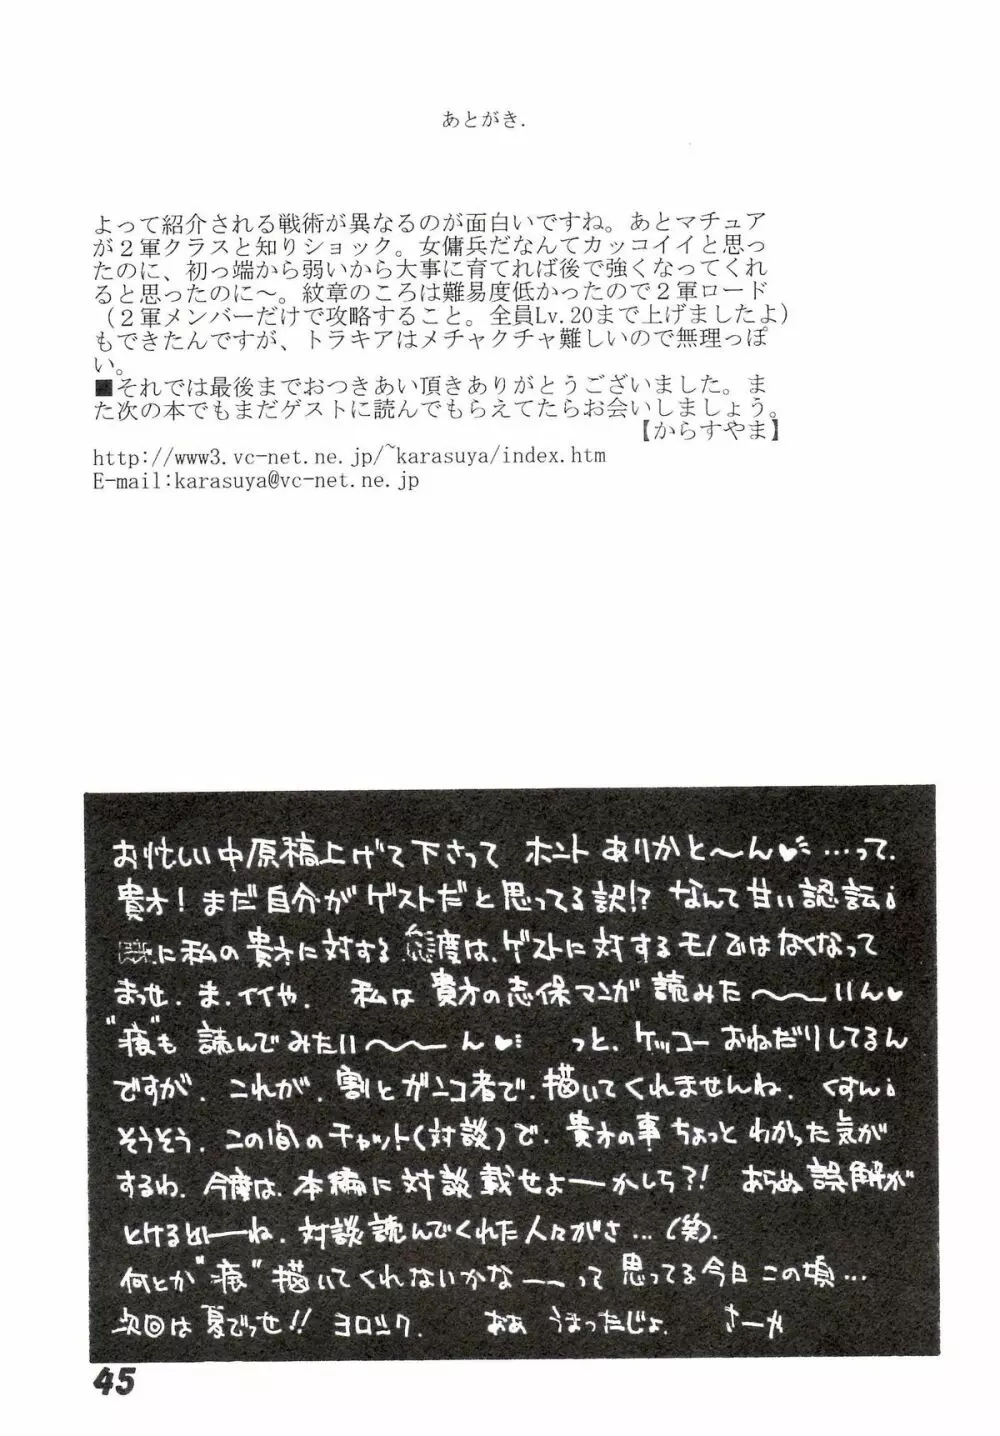 あとがき.
よって紹介される戦術が異なるのが面白いですね。あとマチュア
が２軍クラスと知りショック。女傭兵だなんてカッコイイと思っ
たのに、初っ端から弱いから大事に育てれば後で強くなってくれ
ると思ったのに～。紋章のころは難易度低かったので２軍ロード
（２軍メンバーだけで攻略すること。全員Lv.20まで上げましたよ）
もできたんですが、トラキアはメチャクチャ難しいので無理っぽ
い。
■それでは最後までおつきあい頂きありがとうございました。ま
た次の本でもまだゲストに読んでもらえてたらお会いしましょう。
【からすやま】
http://www3.vc-net.ne.jp/~karasuya/index.htm
E-mail:karasuya@vc-net.ne.jp
お忙しい中原稿上げて下さって ホント ありがと〜ん♥ …って.
貴方！まだ自分がゲストだと思ってる訳!? なんて甘い認
に私の貴方に対する態度は、ゲストに対するモノではなくなって
まっせ. ま.イイや. 私は貴方の志保マンガ読みた〜〜いん♥
"痕"も 読んでみたい〜〜ん♥ っと、ケッコーおねだりしてるん
ですが、これが、割とガンコ者で、描いてくれませんね. くすん
そうそう. この間のチャット(対談)で、貴方の事ちょっとわかった気が
するわ. 今度は、本編に対談載せよーかしら?! あらぬ誤解が
とけるとーね. 対談読んでくれた人々がさ…(笑).
何とか"痕"描いてくれないかなーーって思ってる今日この頃…
次回は夏でっせ!! ヨロシク. おぁ うまったじょ. さーや
45